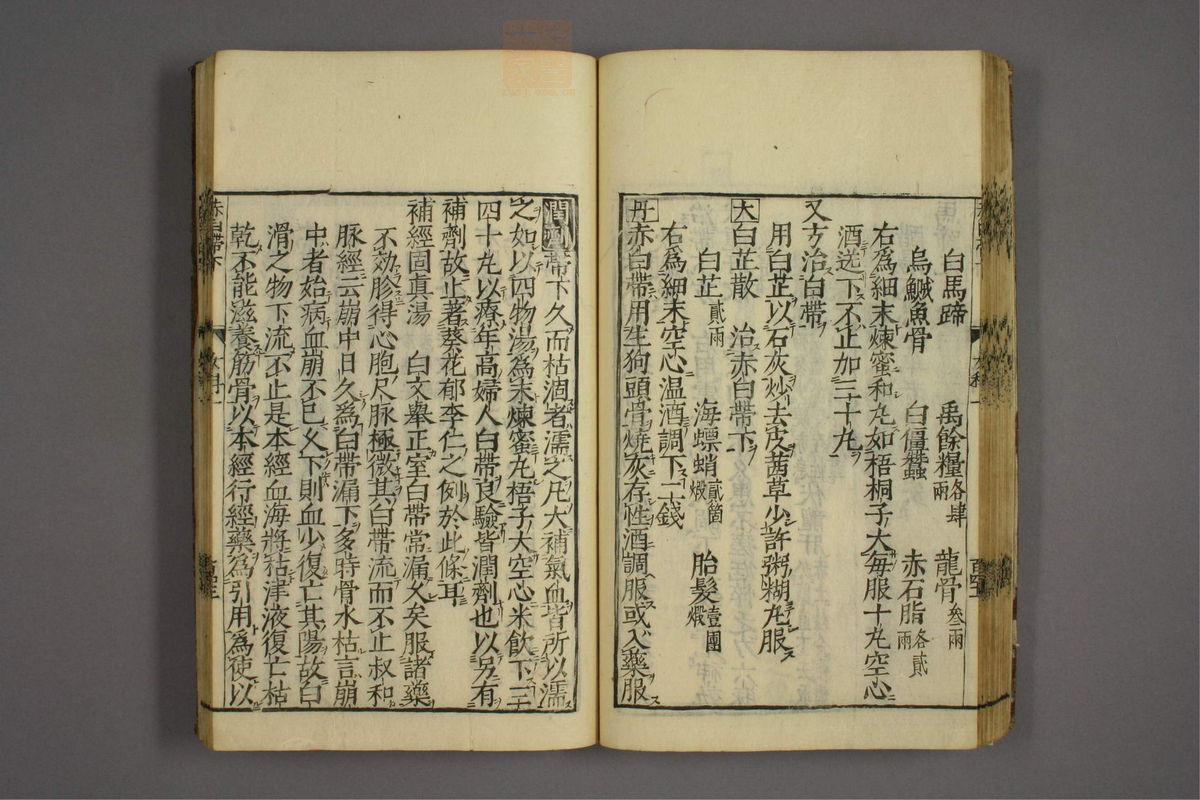 白馬蹄 禹餘糧各肆兩 龍骨叁兩
烏鰂魚骨 白僵蠶 赤石脂各貳兩
右爲細末煉蜜和丸如梧桐子大每服十丸空心
酒送下不止加三十丸
又方治白帶
用白芷以石灰炒去皮茜草少許粥糊丸服
大白芷散 治赤白帶下
白芷貳兩 海螵蛸貳箇煅 胎髮壹團煅
右爲細末空心温酒調下二錢
丹赤白帶用生狗頭骨燒灰存性酒調服或入藥服
潤劑帶下久而枯涸者濡之凡大補氣血皆所以濡
之如以四物湯爲末煉蜜丸梧子大空心米飲下三
四十丸以療年高婦人白帶良驗皆潤劑也以另有
補劑故止著葵花郁李仁之例於此條耳
補經固真湯 白文舉正室白帶常漏久矣服諸藥
不効胗得心胞尺脉極微其白帶流而不止叔和
脉經云崩中日久爲白帶漏下多時骨水枯言崩
中者始病血崩不已久下則血少復亡其陽故白
滑之物下流不止是本經血海將枯津液復亡枯
乾不能滋養筋骨以本經行經藥爲引用爲使以
赤白帶下